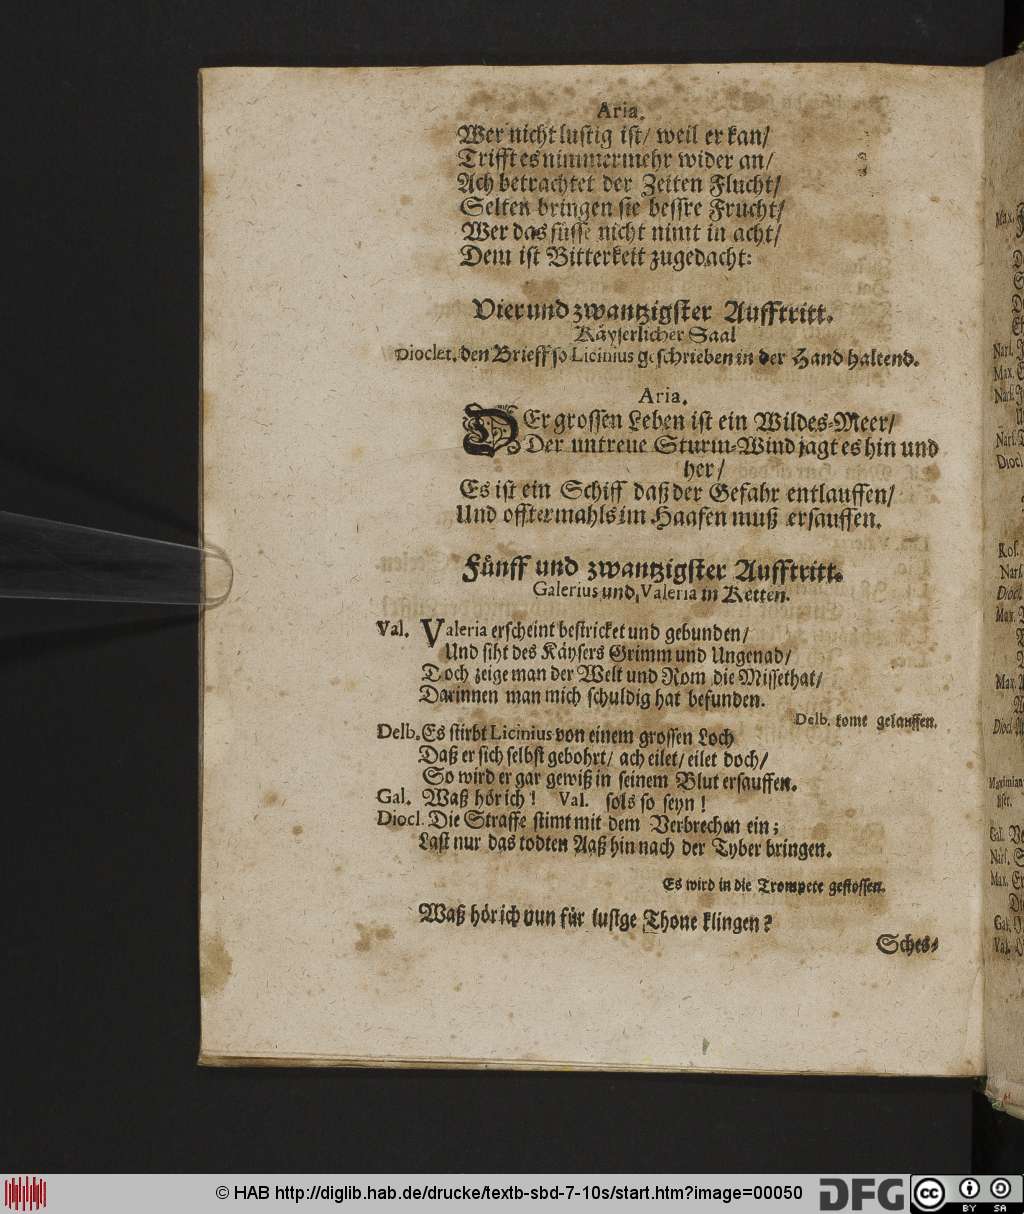 Aria.
Wer nicht lustig ist/ weil er kan/
Trifft es nimmermehr wider an/
Ach betrachtet der Zeiten Flucht/
Selten bringen sie bessre Frucht/
Wer das süsse nicht nimt in acht/
Dem ist Bitterkeit zugedacht:
Vier und zwantzigster Aufftritt.
Käyserlicher Saal
Dioclet. den Brieff so Licinius geschrieben in der Hand haltend.
Aria.
DEr grossen Leben ist ein Wildes-Meer/
Der untreue Sturm-Wind jagt es hin und
her/
Es ist ein Schiff daß der Gefahr entlauffen/
Und offtermahls im Haafen muß ersauffen.
Fünff und zwantzigster Aufftritt.
Galerius und Valeria in Ketten.
Val. Valeria erscheint bestricket und gebunden/
Und siht des Käysers Grimm und Ungenad/
Doch zeige man der Welt und Rom die Missethat/
Darinnen man mich schuldig hat befunden.
Delb. komt gelauffen.
Delb. Es stirbt Licinius von einem grossen Loch
Daß er sich selbst gebohrt/ ach eilet/ eilet doch/
So wird er gar gewiß in seinem Blut ersauffen.
Gal. Waß hör ich! Val. sols so seyn!
Diocl. Die Straffe stimt mit dem Verbrechen ein;
Last nur das todten Aaß hin nach der Tyber bringen.
Es wird in die Trompete gestossen.
Waß hör ich nun für lustge Thone klingen?
Sches-
© HAB http://diglib.hab.de/drucke/textb-sbd-7-10s/start.htm?image=00050
DFG
cc
BY SA